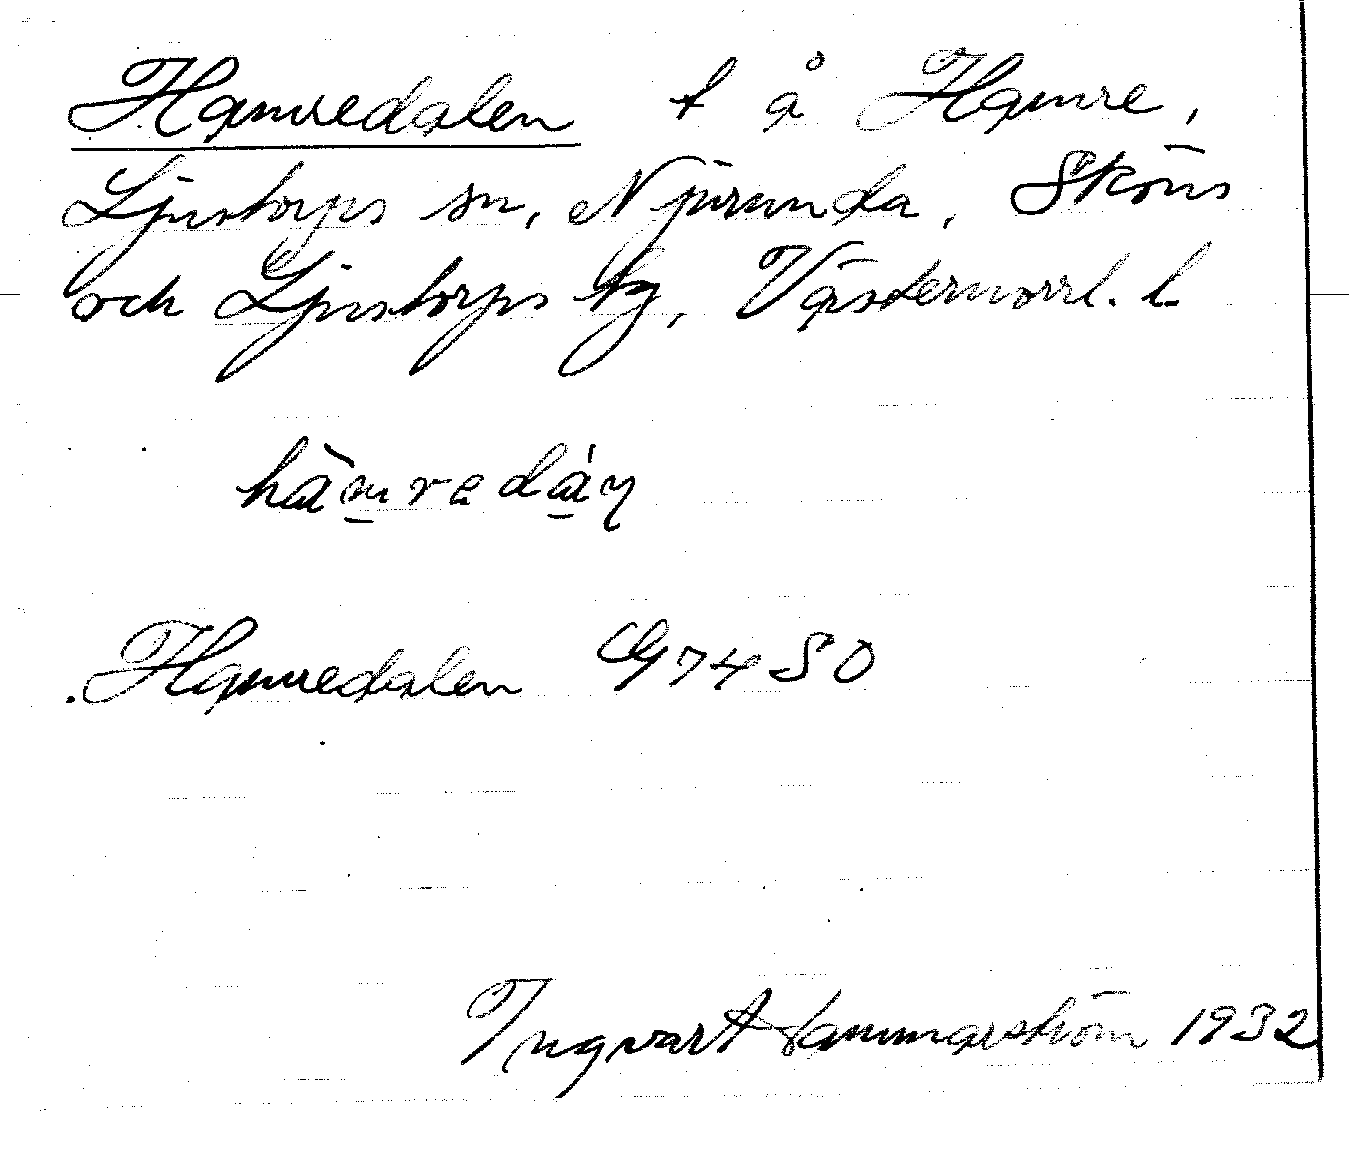 Hamredalen t å Hamre,
Ljustorps sn, Njurunda, Sköns
och Ljustorps tg, Västernorrl. l.
hàmredáɳ
Hamredalen G74SO
Ingvart Hammarström 1932